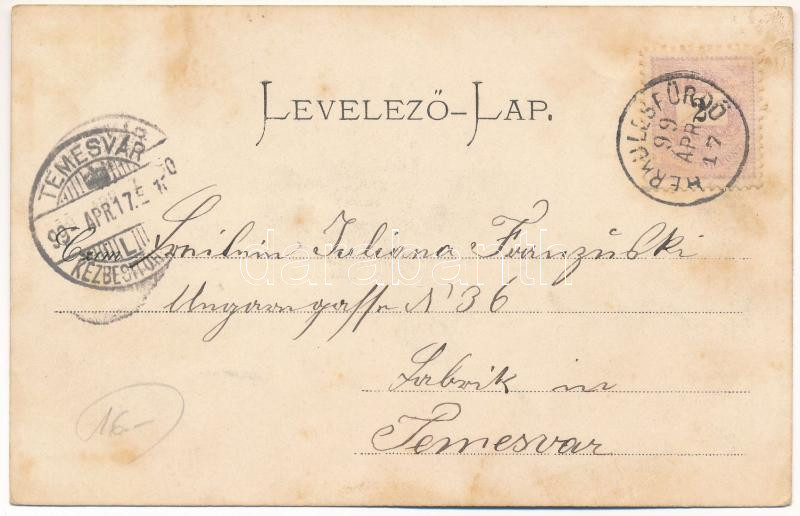 LEVELEZŐ-LAP.
2
HERKULESFÜRDŐ
99
APR
17
TEMESVÁR
99 APR 17
KÉZBESÍTÉS
Fräulein Juliana Franzúski
Ungarngasse N° 36
Fabrik in
Temesvar
16.-
darabanth